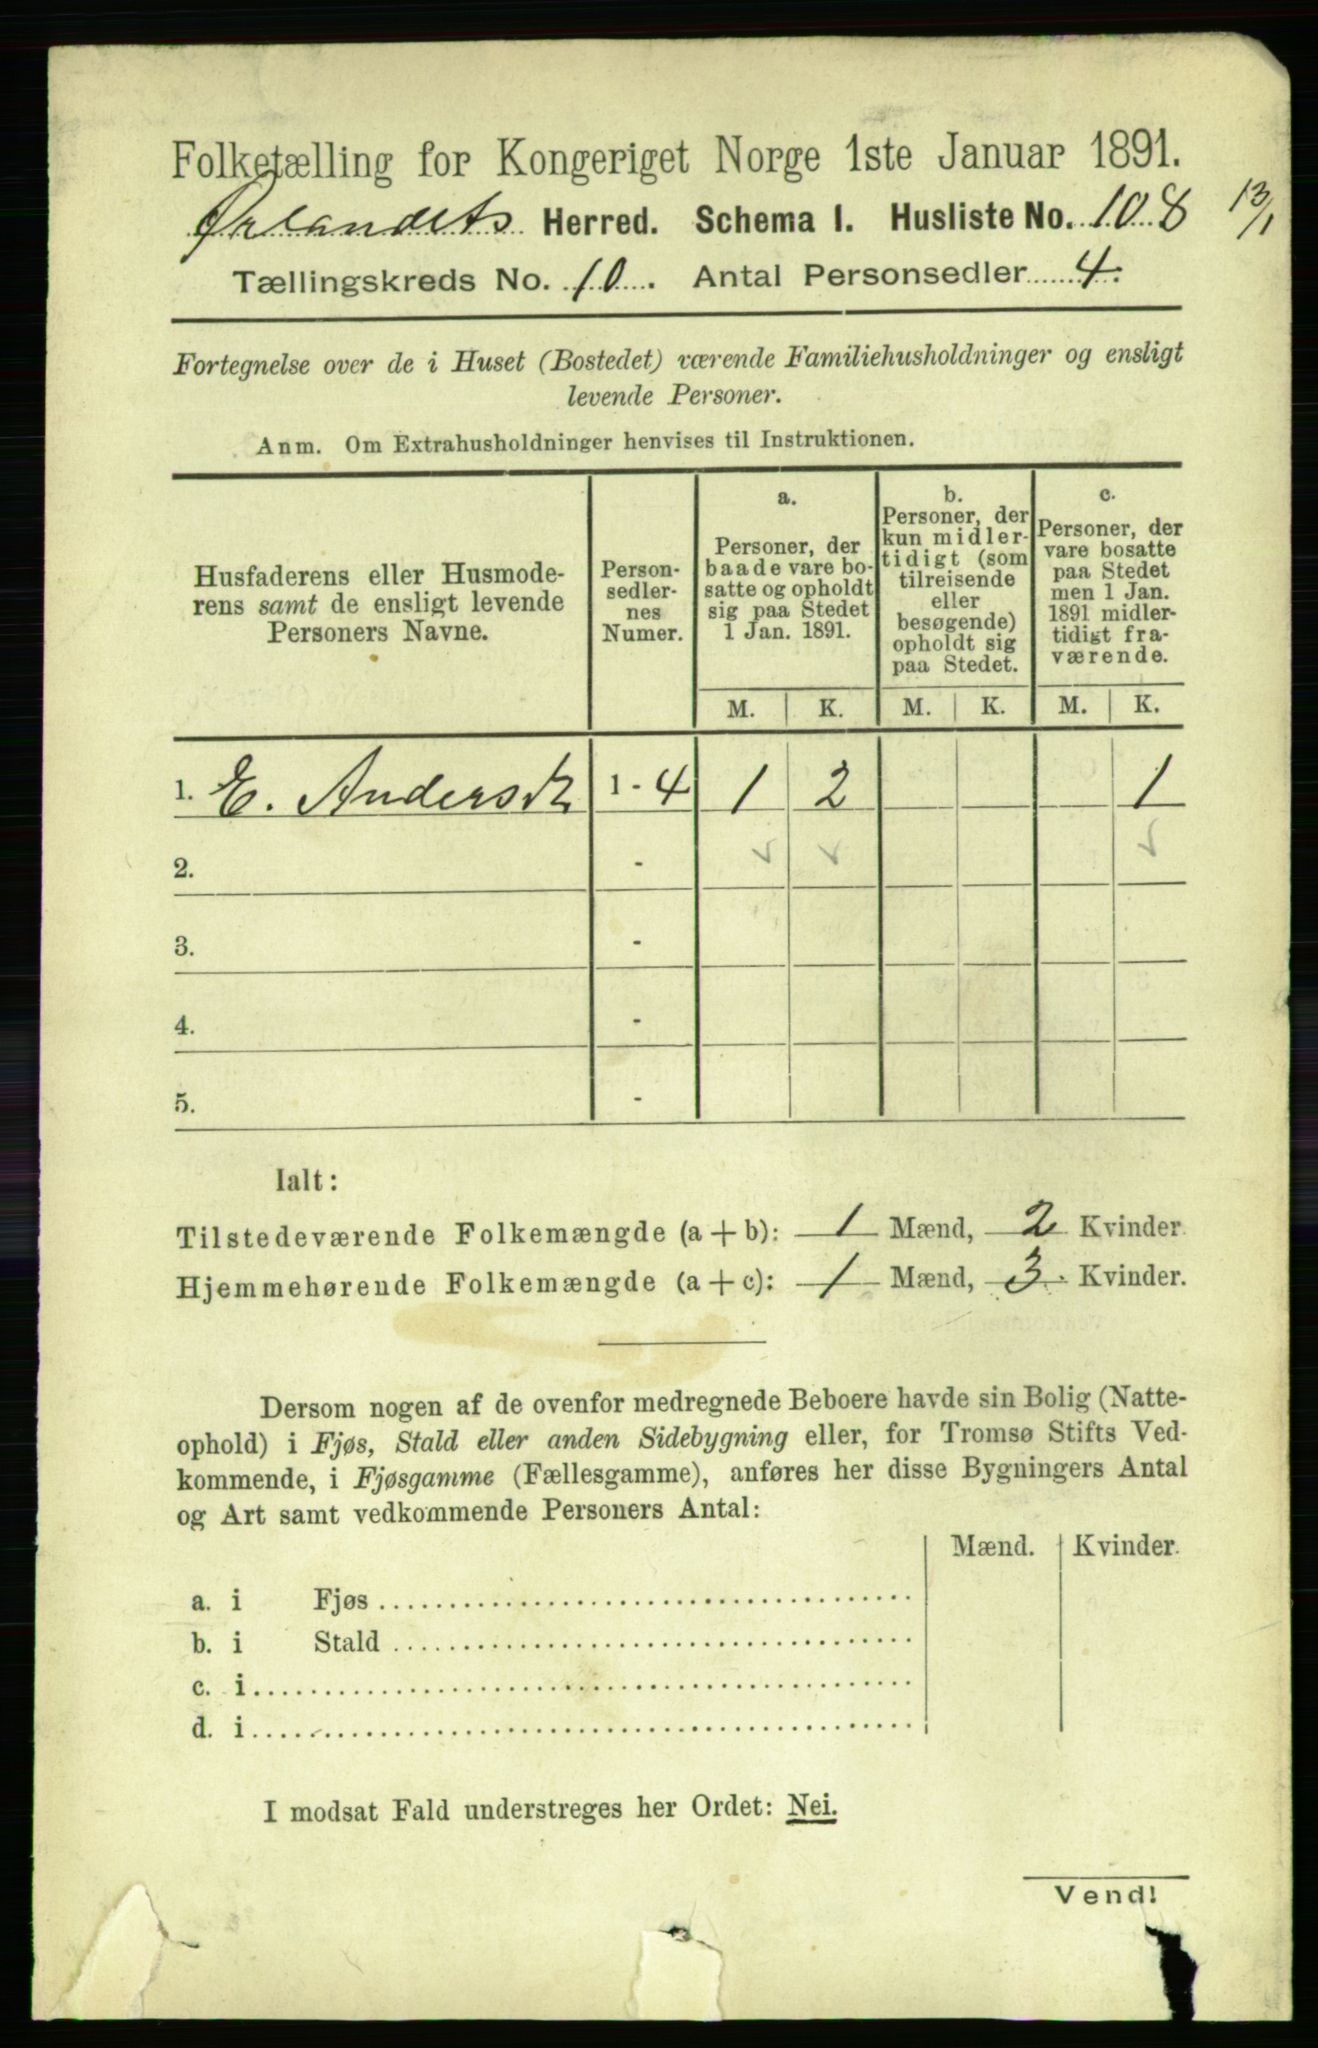 Folketælling for Kongeriget Norge 1ste Januar 1891.
Ørlandets Herred. Schema I. Husliste No. 108 13/1
Tællingskreds No. 10. Antal Personsedler 4.
Fortegnelse over de i Huset (Bostedet) værende Familiehusholdninger og ensligt
levende Personer.
Anm. Om Extrahusholdninger henvises til Instruktionen.
Husfaderens eller Husmode-
rens samt de ensligt levende
Personers Navne.
Person-
sedler-
nes
Numer.
a.
Personer, der
baade vare bo-
satte og opholdt
sig paa Stedet
1 Jan. 1891.
b.
Personer, der
kun midler-
tidigt (som
tilreisende
eller
besøgende)
opholdt sig
paa Stedet.
c.
Personer, der
vare bosatte
paa Stedet
men 1 Jan.
1891 midler-
tidigt fra-
værende.
M. K. M. K. M. K.
1. E. Anders 1 - 4 1 2 1
2. -
3. -
4. -
5. -
Ialt:
Tilstedeværende Folkemængde (a + b): 1 Mænd, 2 Kvinder
Hjemmehørende Folkemængde (a + c): 1 Mænd, 3. Kvinder.
Dersom nogen af de ovenfor medregnede Beboere havde sin Bolig (Natte-
ophold) i Fjøs, Stald eller anden Sidebygning eller, for Tromsø Stifts Ved-
kommende, i Fjøsgamme (Fællesgamme), anføres her disse Bygningers Antal
og Art samt vedkommende Personers Antal:
Mænd. Kvinder.
a. i Fjøs
b. i Stald
c. i
d. i
I modsat Fald understreges her Ordet: Nei.
Vend!